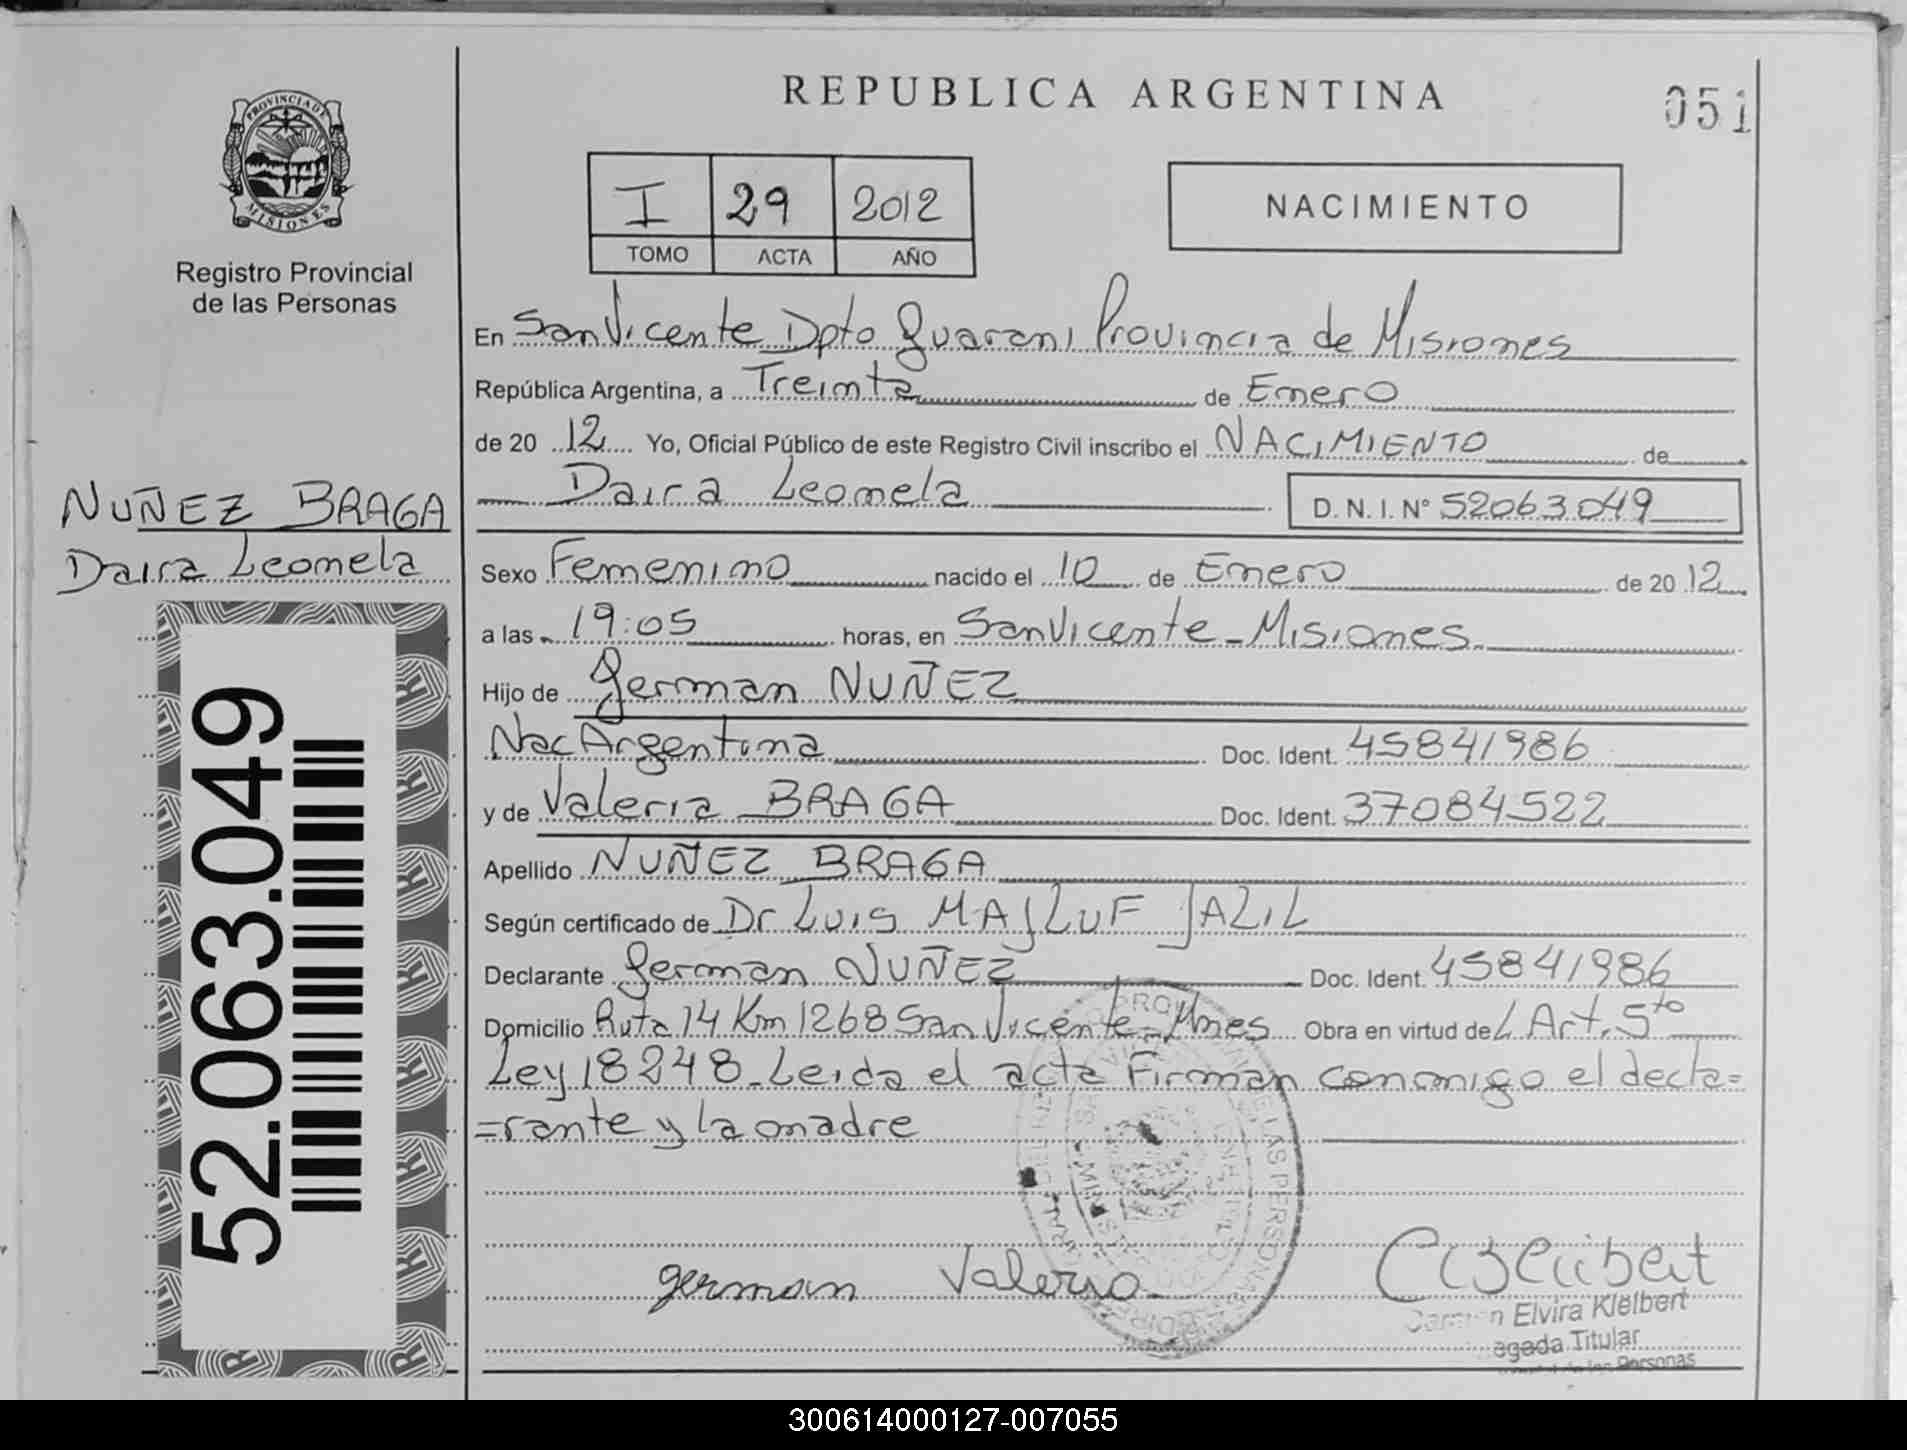 REPUBLICA ARGENTINA
051
PROVINCIA DE MISIONES
Registro Provincial
de las Personas
I 29 2012
TOMO ACTA AÑO
NACIMIENTO
En San Vicente Dpto Guarani Provincia de Misiones
República Argentina, a Treinta de Enero
de 20 12 Yo, Oficial Público de este Registro Civil inscribo el NACIMIENTO de
Daira Leonela D. N. I. Nº 52063049
NUÑEZ BRAGA
Daira Leonela
52.063.049
Sexo Femenino nacido el 10 de Enero de 20 12
a las 19:05 horas, en San Vicente - Misiones
Hijo de German NUÑEZ
Nac Argentina Doc. Ident. 45841986
y de Valeria BRAGA Doc. Ident. 37084522
Apellido NUÑEZ BRAGA
Según certificado de Dr Luis MAJLUF JALIL
Declarante German NUÑEZ Doc. Ident. 45841986
Domicilio Ruta 14 Km 1268 San Vicente - Mnes Obra en virtud de L Art. 5to
Ley 18248 - Leida el acta Firman conmigo el decla=
=rante y la madre
german Valeria
Elvira Kleibert
Titular
Personas
300614000127-007055